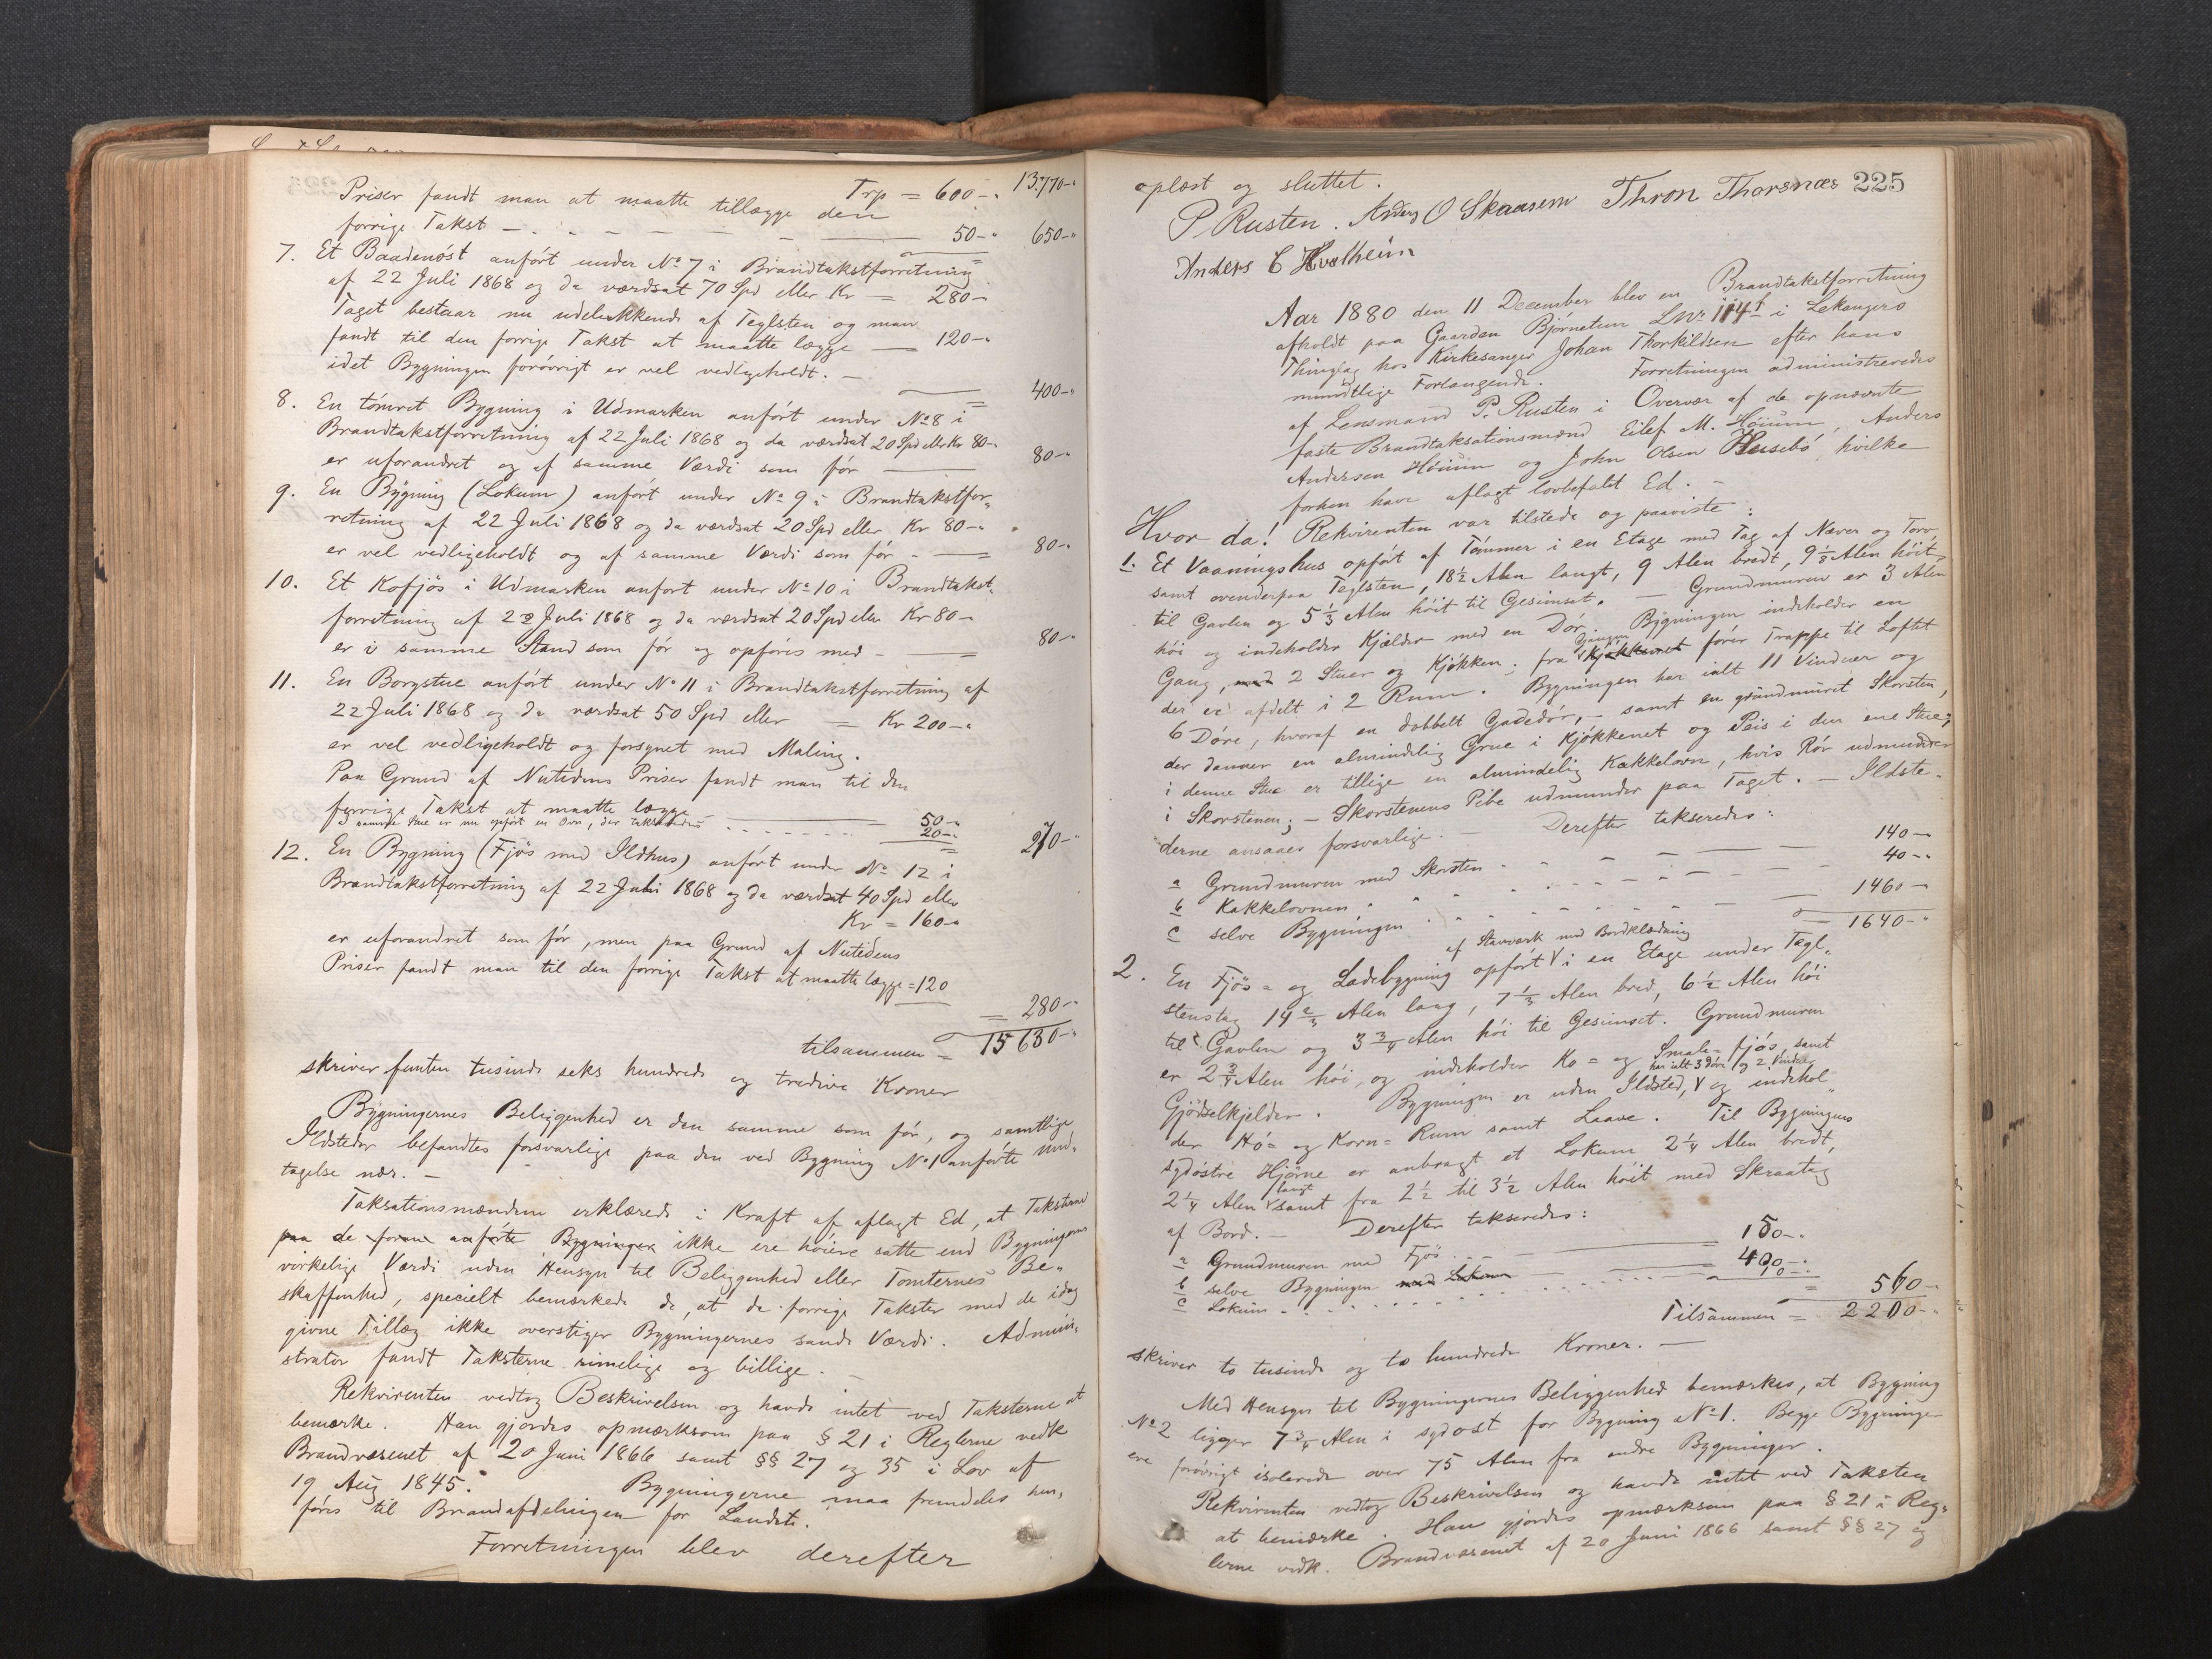 Trp = 600-" 13.770-"
Priser fandt man at maatte tillægge den
forrige Takst - - - - - 50-" 650-"
7. Et Baadenøst anført under No 7 i Brandtakstforretning
af 22 Juli 1868 og da værdsat 70 Spd eller Kr = 280-
Taget bestaar nu udelukkende af Teglsten og man
fandt til den forrige Takst at maatte lægge - 120-"
idet Bygningen forøvrigt er vel vedligeholdt. -
= 400-"
8. En tømret Bygning i Udmarken anført under No 8 i
Brandtakstforretning af 22 Juli 1868 og da værdsat 20 Spd eller Kr 80-"
er uforandret og af samme Værdi som før - 80-"
9. En Bygning (Lokum) anført under No 9 i Brandtakstfor-
retning af 22 Juli 1868 og da værdsat 20 Spd eller Kr 80-"
er vel vedligeholdt og af samme Værdi som før - 80-"
10. Et Kofjøs i Udmarken anført under No 10 i Brandtakst-
forretning af 22 Juli 1868 og da værdsat 20 Spd eller Kr 80-
er i samme Stand som før og opføres med - 80-"
11. En Borgstue anført under No 11 i Brandtakstforretning af
22 Juli 1868 og da værdsat 50 Spd eller = Kr 200-"
er vel vedligeholdt og forsynet med Maling.
Paa Grund af Nutidens Priser fandt man til den
forrige Takst at maatte lægge - 50-"
I samme Stue er nu opført en Ovn, der taxeredes - 20-"
= 270-"
12. En Bygning (Fjøs med Ildhus) anført under No 12 i
Brandtakstforretning af 22 Juli 1868 og da værdsat 40 Spd eller
Kr = 160-"
er uforandret som før, men paa Grund af Nutidens
Priser fandt man til den forrige Takst at maatte lægge = 120
= 280-"
tilsammen = 15630-"
skriver femten tusinde seks hundrede og tredive Kroner
Bygningernes Beliggenhed er den samme som før, og samtlige
Ildsteder befandtes forsvarlige paa den ved Bygning No 1 anførte Und-
tagelse nær. -
Taksationsmændene erklærede i Kraft af aflagt Ed, at Taksterne
paa de foran anførte Bygninger ikke ere høiere satte end Bygningernes
virkelige Værdi uden Hensyn til Beliggenhed eller Tomternes Be-
skaffenhed, specielt bemærkede de, at de forrige Takster med de idag
givne Tillæg ikke overstiger Bygningernes sande Værdi. Admini-
strator fandt Taksterne rimelige og billige. -
Rekvirenten vedtog Beskrivelsen og havde intet ved Taksterne at
bemærke. Han gjordes opmærksom paa § 21 i Reglerne vedk
Brandvæsenet af 20 Juni 1866 samt §§ 27 og 35 i Lov af
19 Aug 1845. Bygningerne maa fremdeles hen-
føres til Brandafdelingen for Landet.
Forretningen blev derefter
225
oplæst og sluttet.
P Rusten. Anders O Skaasem Thron Thorsnæs
Anders C Hvalheim
Aar 1880 den 11 December blev en Brandtakstforretning
afholdt paa Gaarden Bjørnetun LNr 114 f i Lekangers
Thinglag hos Kirkesanger Johan Thorkildsen efter hans
mundtlige Forlangende. Forretningen administreredes
af Lensmand P. Rusten i Overvær af de opnævnte
faste Brandtaksationsmænd Eilef M. Høium, Anders
Andersen Høium og John Olsen Husebø, hvilke
forhen have aflagt lovbefalet Ed. -
Hvor da! Rekvirenten var tilstede og paaviste:
1. Et Vaaningshus opført af Tømmer i en Etage med Tag af Næver og Torv
samt ovenderpaa Teglsten, 18 1/2 Alen langt, 9 Alen bredt, 9 1/3 Alen høit
til Gavlen og 5 1/3 Alen høit til Gesimset. - Grundmuren er 3 Alen
høi og indeholder Kjælder med en Dør. Bygningen indeholder en
Gang, med 2 Stuer og Kjøkken; fra Kjøkkenet Gangen fører Trappe til Loftet
der er afdelt i 2 Rum. Bygningen har ialt 11 Vinduer og
6 Døre, hvoraf en dobbelt Gadedør, - samt en grundmuret Skorsten,
der danner en almindelig Grue i Kjøkkenet og Peis i den ene Stue;
i denne Stue er tillige en almindelig Kakkelovn, hvis Rør udmunder
i Skorstenen; - Skorstenens Pibe udmunder paa Taget. - Ildste-
derne ansaaes forsvarlige. - Derefter takseredes:
a Grundmuren med Skorsten - 140-
b Kakkelovnen - 40-"
c selve Bygningen - 1460-
= 1640-"
2. En Fjøs- og Ladebygning opført af Stavværk med Bordklædning i en Etage under Tegl-
stenstag 14 2/3 Alen lang, 7 1/3 Alen bred, 6 1/2 Alen høi
til Gavlen og 3 3/4 Alen høi til Gesimset. Grundmuren
er 2 3/4 Alen høi, og indeholder Ko- og Smale-fjøs, samt
Gjødselkjelder. Bygningen er uden Ildsted, har ialt 3 Døre og 2 Vinduer og indehol-
der Hø- og Korn-Rum samt Laave. Til Bygningens
sydøstre Hjørne er anbragt et Lokum 2 1/4 Alen bredt,
2 1/4 Alen langt samt fra 2 1/2 til 3 1/2 Alen høit med Skraatag
af Bord. - Derefter takseredes:
a Grundmuren med Fjøs - 150-"
b selve Bygningen med Lokum - 400-"
c Lokum - 10-"
= 560-
Tilsammen = 2200-"
skriver to tusinde og to hundrede Kroner. -
Med Hensyn til Bygningernes Beliggenhed bemærkes, at Bygning
No 2 ligger 7 3/4 Alen i sydost for Bygning No 1. Begge Bygninger
ere forøvrigt isolerede over 75 Alen fra andre Bygninger.
Rekvirenten vedtog Beskrivelsen og havde intet ved Taksten
at bemærke. Han gjordes opmærksom paa § 21 i Reg-
lerne vedk. Brandvæsenet af 20 Juni 1866 samt §§ 27 og